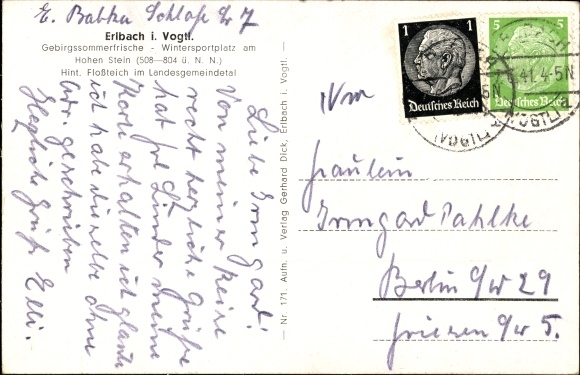 E. Babka Schloß Str 7
Erlbach i. Vogtl.
Gebirgssommerfrische - Wintersportplatz am
Hohen Stein (508—804 ü. N. N.)
Hint. Floßteich im Landesgemeindetal
Liebe Irmgard!
Von meiner Reise
recht herzliche Grüße
hat Frl. meine
Karte erhalten ich glaube
ich habe dieselbe ohne
Adr. geschrieben
Herzliche Grüße Elli.
— Nr. 171 Aufn. u. Verlag Gerhard Dick, Erlbach i. Vogtl. —
1 1
Deutsches Reich
5 5
Deutsches Reich
41.4-5N
(VOGTL)
Fräulein
Irmgard Pahlke
Berlin S/W 29
Friesen Str 5.